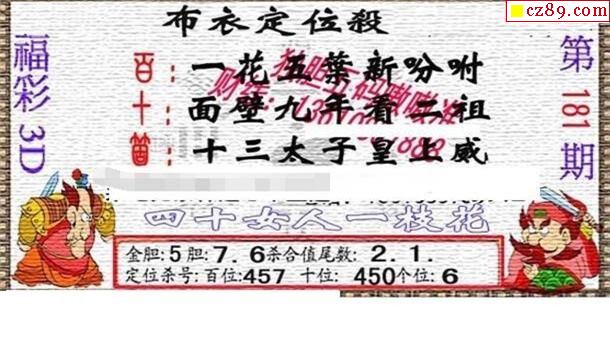 cz89.com
布衣定位殺
福彩3D
第181期
百：一花五葉新吩咐
十：面壁九年看二祖
個：十三太子皇上威
四十女人一枝花
金胆:5胆:7.6杀合值尾数:2.1.
定位杀号:百位:457 十位:450个位:6